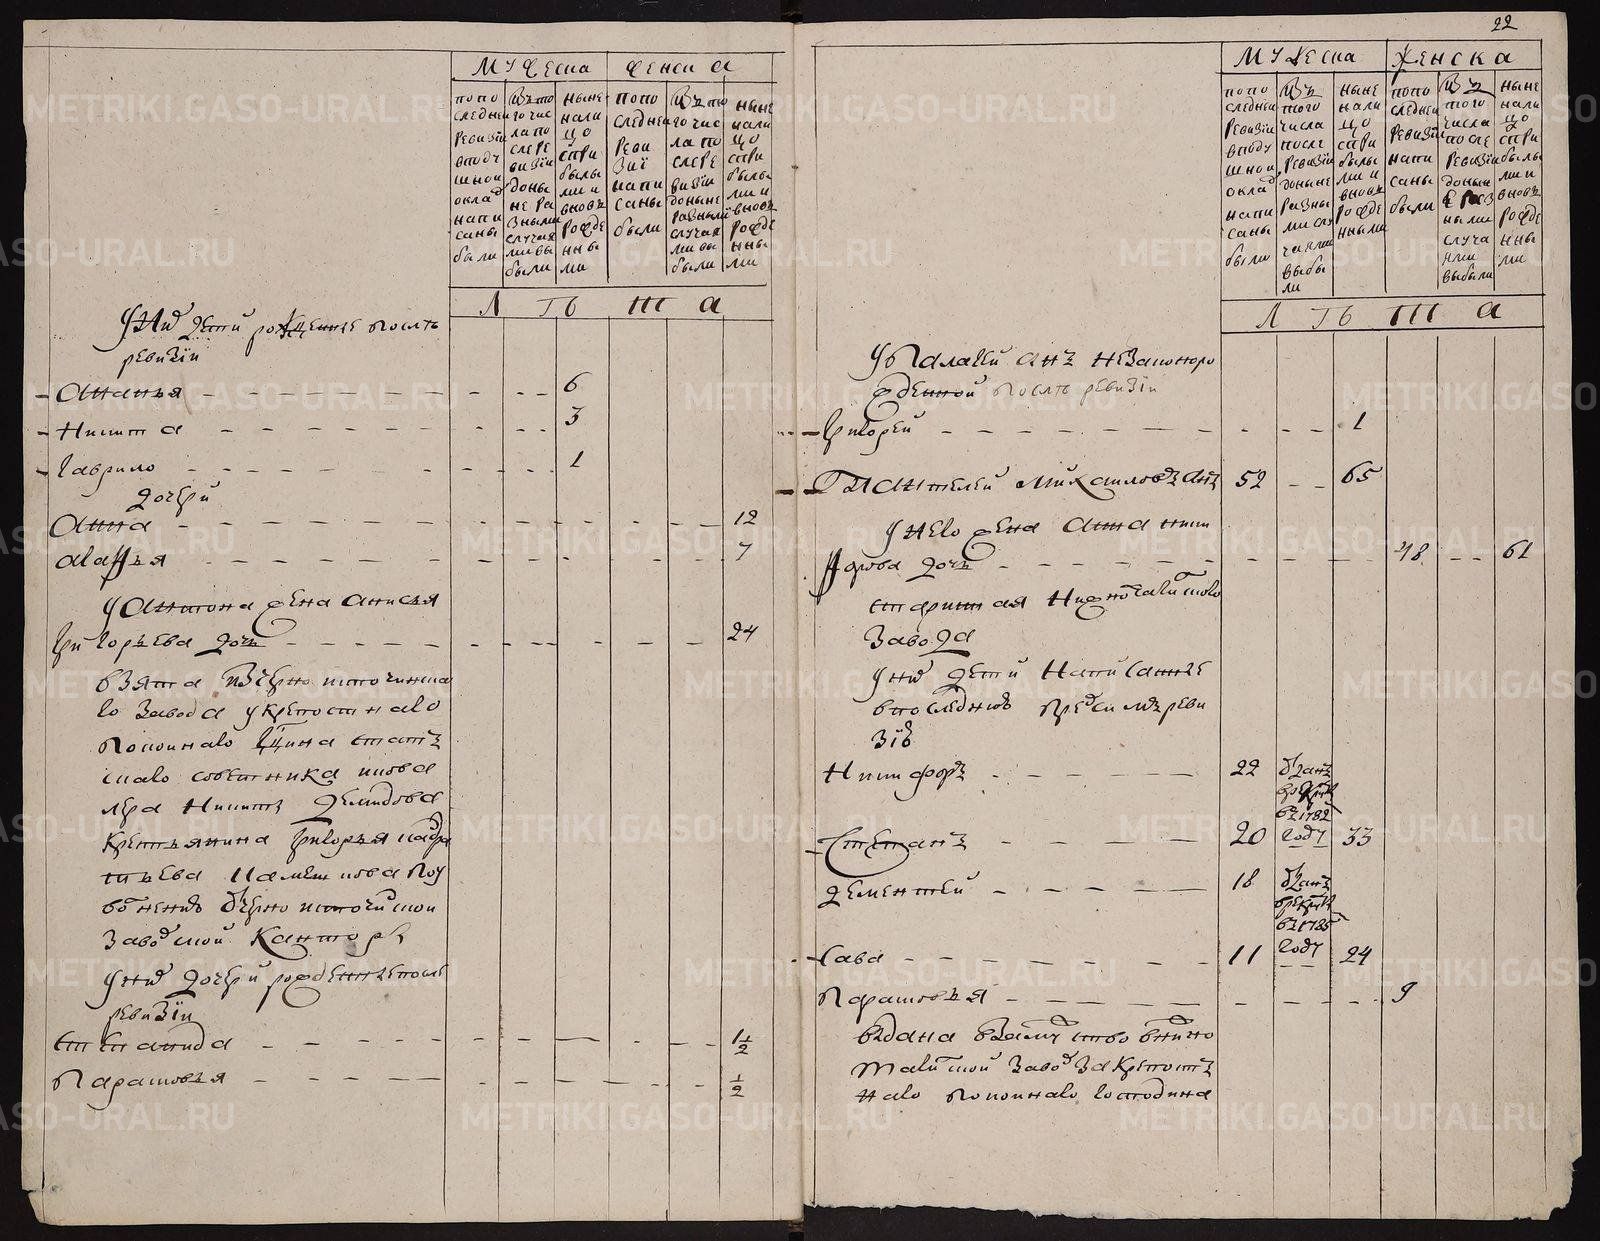 22
мужеска
женска
попо следней ревизїи вподу шной оклад напи саны были
изъ то го чис ла по сле ре визїи доны не ра зными случая ми вы были
ныне нали цо съ при былы ми и вновь рожде нны ми
попо следней реви зїи напи саны были
изъ то го чис ла по сле ре визїи доныне разными случая ми вы были
ныне нали цо съ при былы ми и вновь рожде нны ми
лѣта
Уних дети рожденные послѣ
ревизїи
Ананья 6
Никита 3
Гаврило 1
дочери
Анна 12
Агафья 7
У Антона жена Анисья
Григорьева дочь 24
взята изчерноисточинска
го завода укрепостнаго
покоинаго чина статъ
скаго советника икова
лера Никиты Демидова
крестьянина Григорья
заводской канторы
Уних дочери рожденные после
ревизїи
Степанида 1 1/2
Парасковья 1/2
мужеска
женска
попо следней ревизїи вподу шной оклад напи саны были
изъ того числа после ревизїи доныне разны ми слу чаями выбы ли
ныне нали цо съ при былы ми и вновь рожде нными
попо следней ревизїи напи саны были
изъ того числа после ревизїи доныне раз ными случа ями выбыли
ныне нали цо съ при былы ми и вновь рожде нны ми
лѣта
У Палагеи сынъ незаконноро
жденной послѣ ревизїи
Григорей 1
Пантелей Михаиловъ сынъ 52 65
У него жена Анна Ники
форова дочь 48 61
старинная Нижнотагилскаго
завода
Уних дети написанные
впоследнюю пред симъ реви
зїю
Никифоръ 22 отданъ врекруты въ 1782 году
Степанъ 20 33
Дементей 18 отданъ врекруты въ 1785 году
Сава 11 24
Парасковья 9
выдана взамужство внижно
тагилской завод за крепостъ
наго покоинаго господина